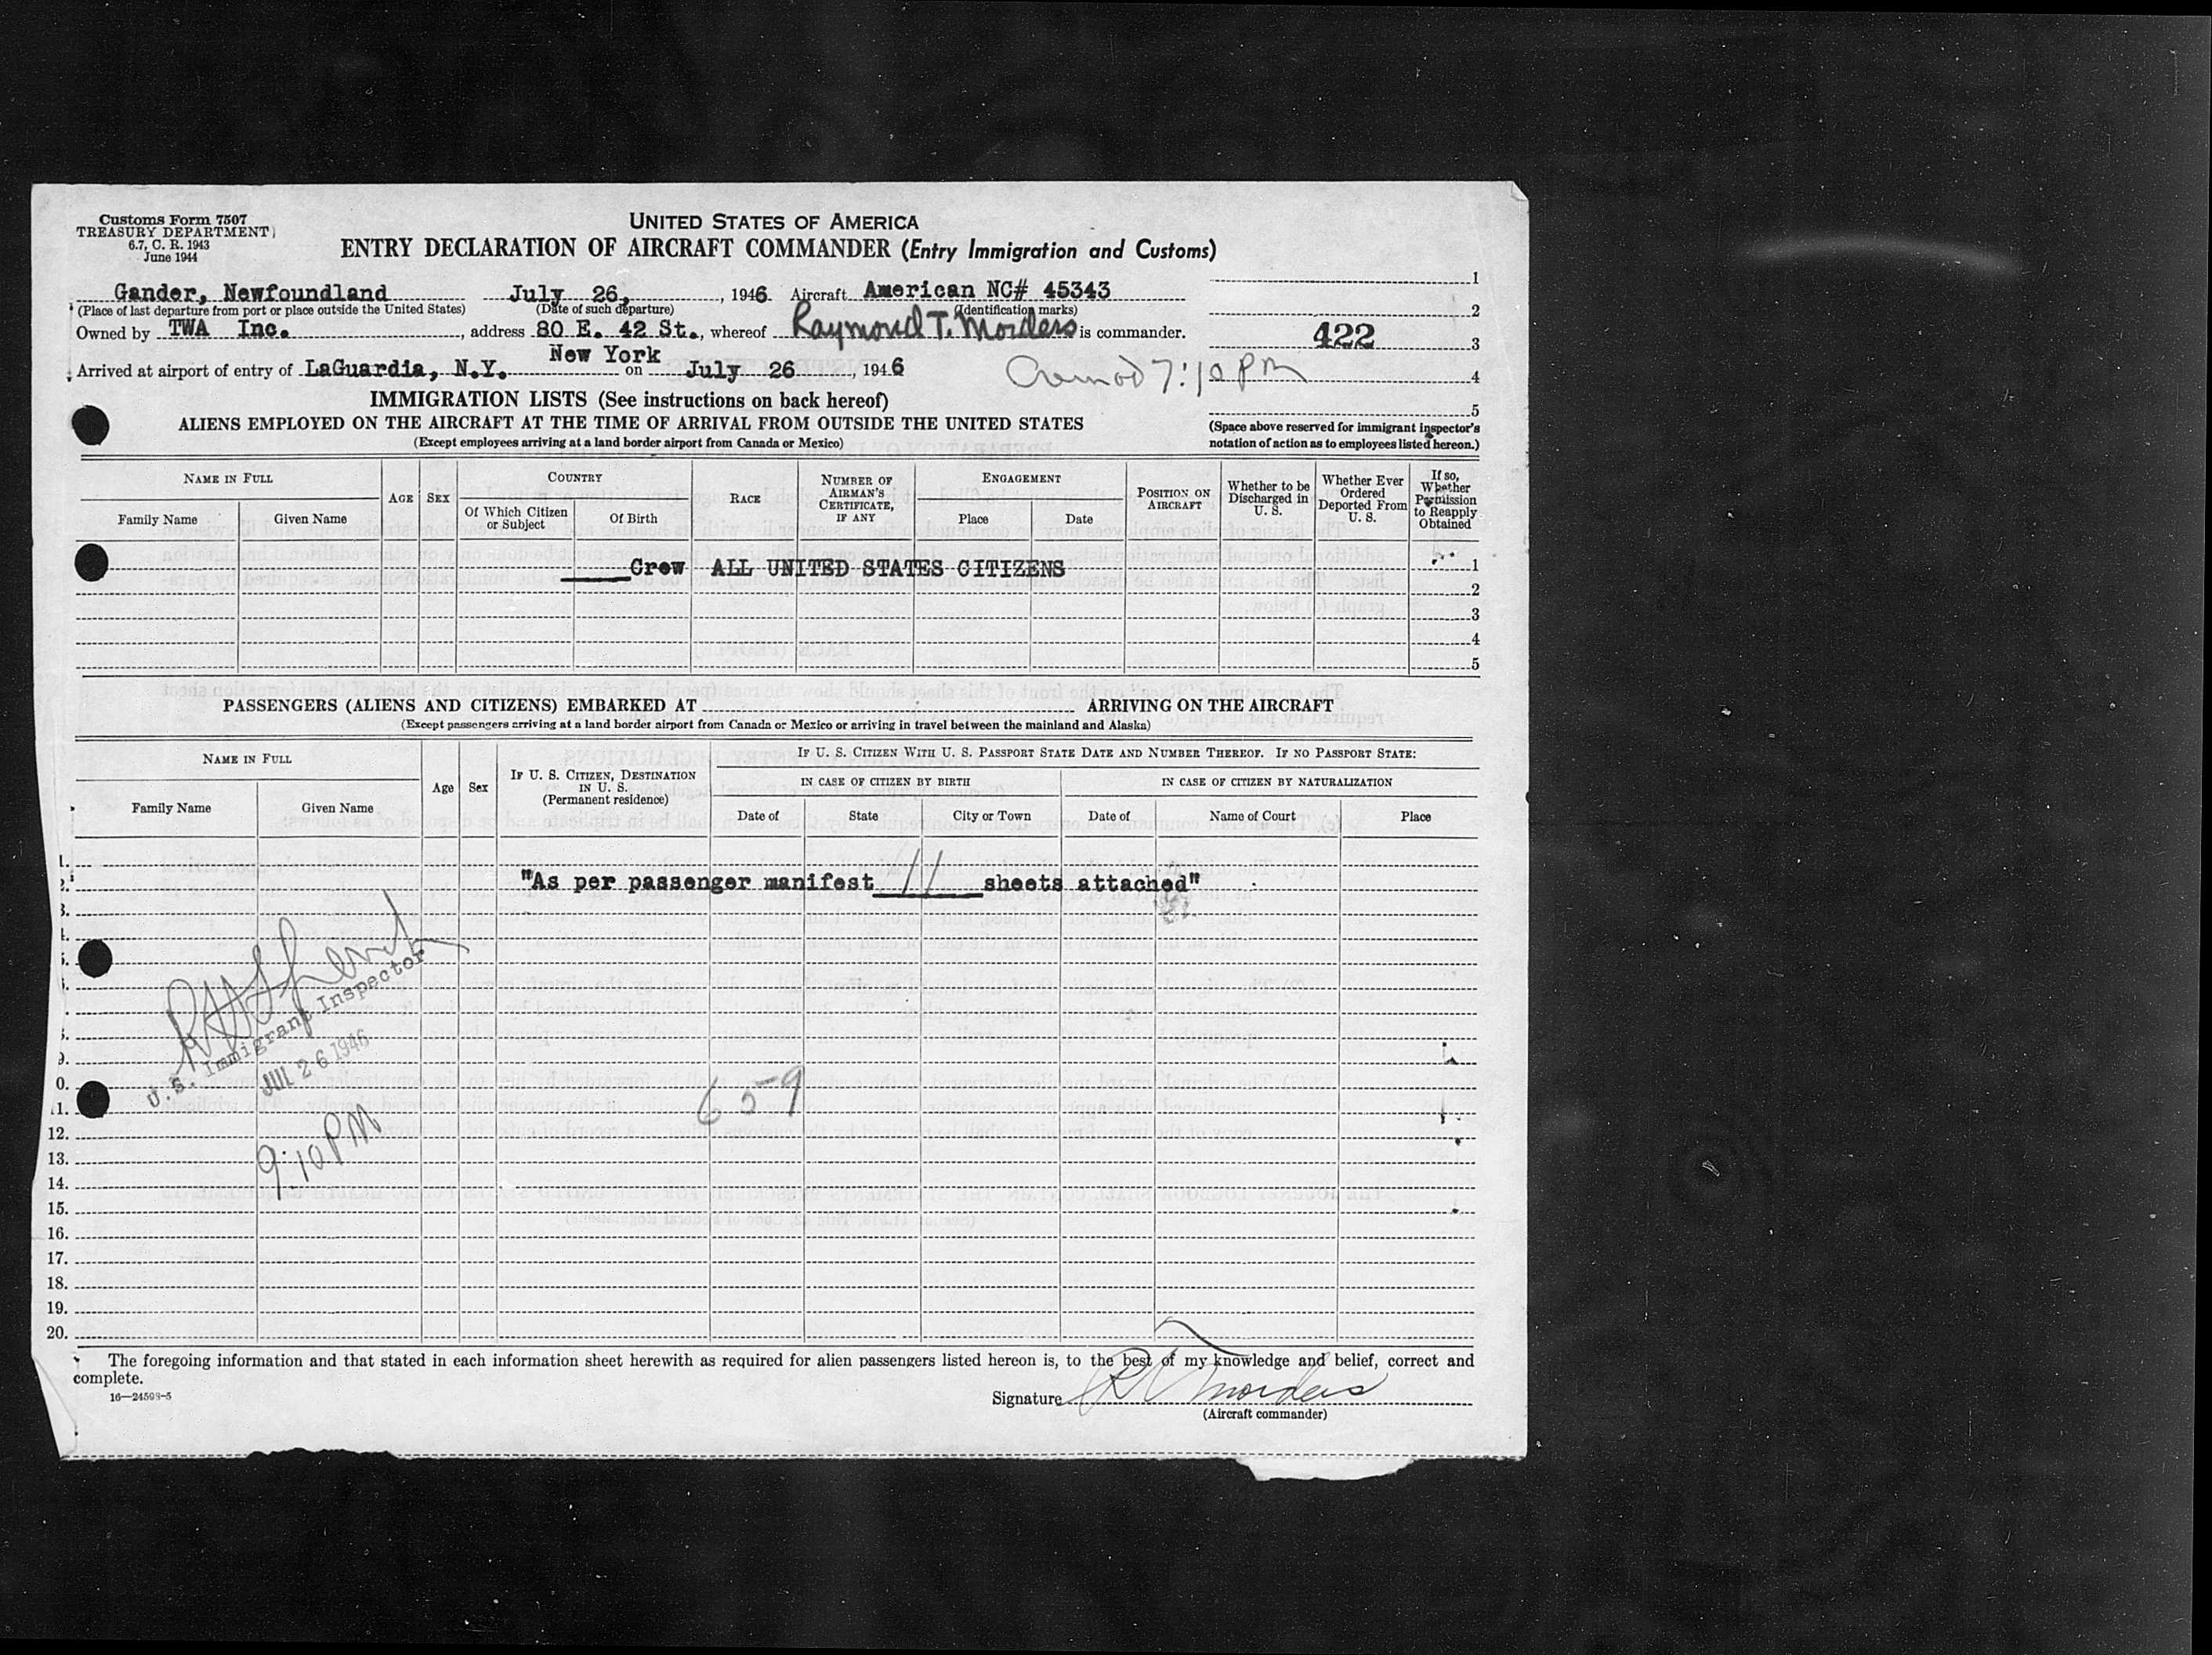 Customs Form 7507
TREASURY DEPARTMENT
6.7, C. R. 1943
June 1944
UNITED STATES OF AMERICA
ENTRY DECLARATION OF AIRCRAFT COMMANDER (Entry Immigration and Customs)
Gander, Newfoundland July 26, 1946. Aircraft American NC# 45343
(Place of last departure from port or place outside the United States) (Date of such departure) (Identification marks)
Owned by TWA Inc., address 80 E. 42 St., whereof Raymond T. Morders is commander.
New York
Arrived at airport of entry of LaGuardia, N.Y. on July 26, 1946
7:10 PM
1
2
422 3
4
5
(Space above reserved for immigrant inspector's
notation of action as to employees listed hereon.)
IMMIGRATION LISTS (See instructions on back hereof)
ALIENS EMPLOYED ON THE AIRCRAFT AT THE TIME OF ARRIVAL FROM OUTSIDE THE UNITED STATES
(Except employees arriving at a land border airport from Canada or Mexico)
NAME IN FULL
Family Name Given Name
AGE SEX
COUNTRY
Of Which Citizen or Subject Of Birth
RACE
NUMBER OF AIRMAN'S CERTIFICATE, IF ANY
ENGAGEMENT
Place Date
POSITION ON AIRCRAFT
Whether to be Discharged in U. S.
Whether Ever Ordered Deported From U. S.
If so, Whether Permission to Reapply Obtained
Crew ALL UNITED STATES CITIZENS 1
2
3
4
5
PASSENGERS (ALIENS AND CITIZENS) EMBARKED AT ARRIVING ON THE AIRCRAFT
(Except passengers arriving at a land border airport from Canada or Mexico or arriving in travel between the mainland and Alaska)
NAME IN FULL
Family Name Given Name
Age Sex
IF U. S. CITIZEN, DESTINATION IN U. S.
(Permanent residence)
IF U. S. CITIZEN WITH U. S. PASSPORT STATE DATE AND NUMBER THEREOF. IF NO PASSPORT STATE:
IN CASE OF CITIZEN BY BIRTH IN CASE OF CITIZEN BY NATURALIZATION
Date of State City or Town Date of Name of Court Place
1.
2. "As per passenger manifest 11 sheets attached"
3.
U.S. Immigrant Inspector
JUL 26 1946
9:10 PM
9.
0.
11. 659
12.
13.
14.
15.
16.
17.
18.
19.
20.
The foregoing information and that stated in each information sheet herewith as required for alien passengers listed hereon is, to the best of my knowledge and belief, correct and
complete.
16—24598-5
Signature R T Morders
(Aircraft commander)